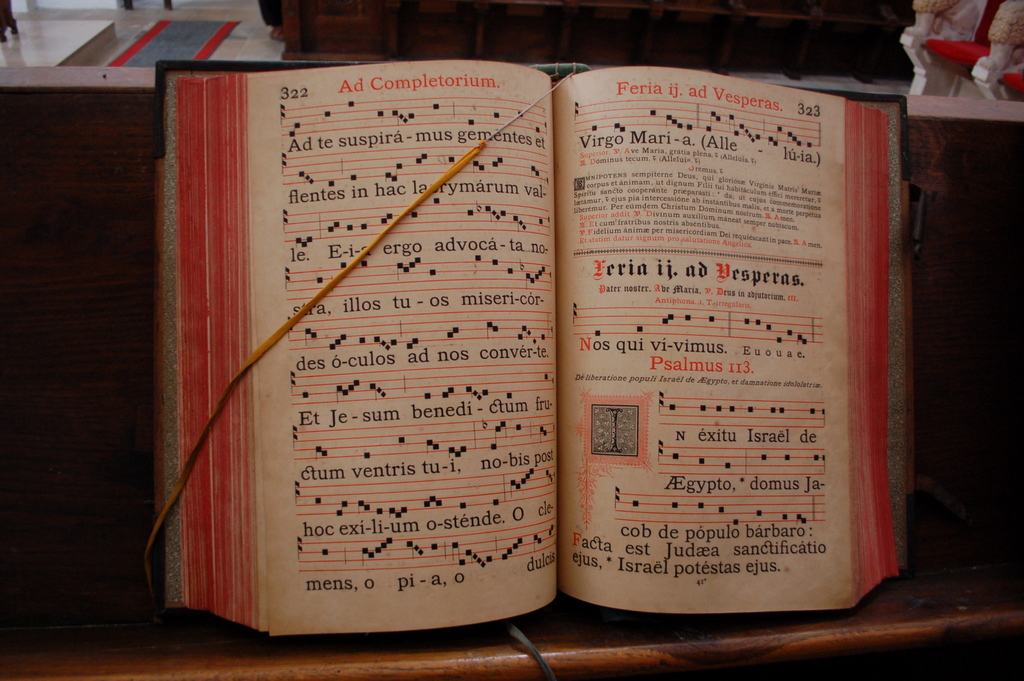 322
Ad Completorium.
Ad te suspirá - mus gementes et
flentes in hac lacrymárum val-
le. E-i- ergo advocá - ta no-
stra, illos tu - os miseri-cór-
des ó-culos ad nos convér-te.
Et Je - sum benedí - ctum fru-
ctum ventris tu-i, no-bis post
hoc exí-li-um o-sténde. O cle-
mens, o pi - a, o dulcis
Feria ij. ad Vesperas.
323
Virgo Marí - a. (Alle - lú-ia.)
Superior. ℣. Ave María, gratia plena. ℟ (Alleluia.)
℟. Dominus tecum. ℟ (Allelui .)
Oremus.
OMNIPOTENS sempiterne Deus, qui gloriosæ Virginis Matris Mariæ
corpus et ánimam, ut dignum Filii tui habitáculum effici mererétur,
Spíritu sancto cooperánte præparásti: da, ut cujus commemoratióne
lætámur, ejus pia intercessióne ab instántibus malis, et a morte perpétua
liberémur. Per eúmdem Christum Dominum nostrum. ℟. Amen.
Superior addit ℣. Divinum auxílium máneat semper nobíscum.
℟. Et cum fratribus nostris abséntibus.
℣. Fidélium ánimæ per misericórdiam Dei requiéscant in pace. ℟. Amen.
Et statim datur signum pro salutatione Angelica.
Feria ij. ad Vesperas.
Pater noster. Ave María. ℣. Deus in adjutorium. etc.
Antiphona. 1. T. irregularis.
Nos qui ví-vimus. E u o u a e.
Psalmus 113.
De liberatione populi Israël de Ægypto, et damnatione idololatriæ.
IN éxitu Israël de
Ægypto, * domus Ja-
cob de pópulo bárbaro :
Facta est Judæa sanctificátio
ejus, * Israël potéstas ejus.
41*